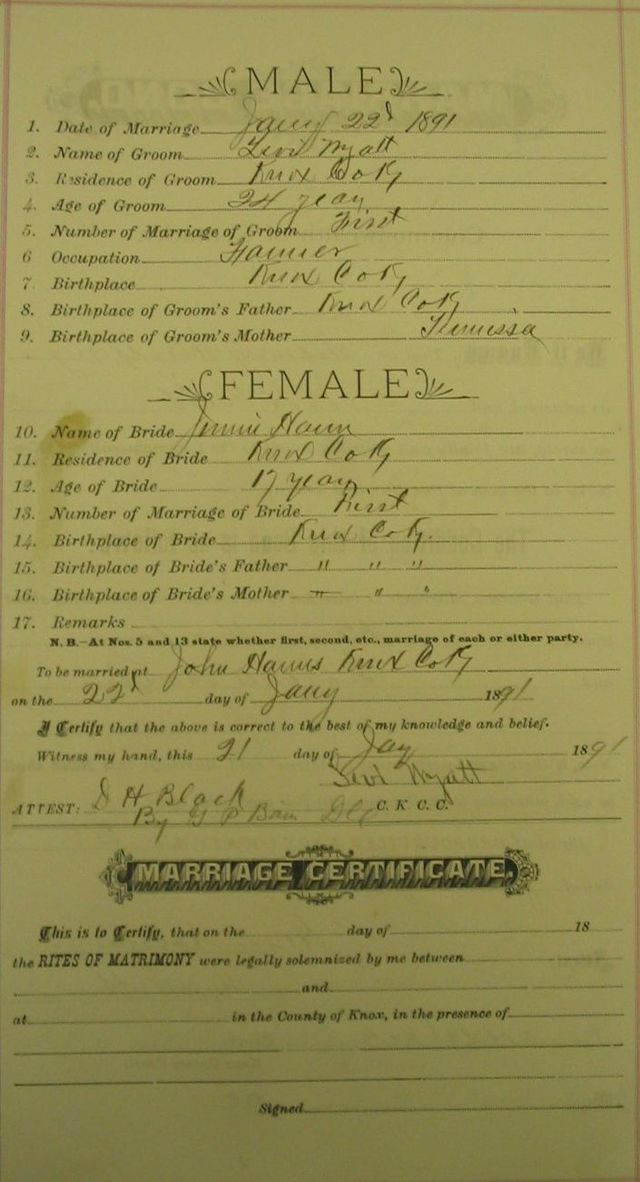 MALE
1. Date of Marriage Jany 22d 1891
2. Name of Groom Levi Wyatt
3. Residence of Groom Knox Co Ky
4. Age of Groom 24 years
5. Number of Marriage of Groom First
6 Occupation Farmer
7. Birthplace Knox Co Ky
8. Birthplace of Groom's Father Knox Co Ky
9. Birthplace of Groom's Mother
FEMALE
10. Name of Bride Jennie
11. Residence of Bride Knox Co Ky
12. Age of Bride 17 years
13. Number of Marriage of Bride First
14. Birthplace of Bride Knox Co Ky.
15. Birthplace of Bride's Father " " "
16. Birthplace of Bride's Mother " " "
17. Remarks
N. B.—At Nos. 5 and 13 state whether first, second, etc., marriage of each or either party.
To be married at John Knox Co Ky
on the 22d day of Jany 1891
I Certify that the above is correct to the best of my knowledge and belief.
Witness my hand, this 21 day of Jay 1891
Levi Wyatt
ATTEST: D H Black C. K. C. C.
By G P
MARRIAGE CERTIFICATE.
This is to Certify, that on the day of 18
the RITES OF MATRIMONY were legally solemnized by me between
and
at in the County of Knox, in the presence of
Signed